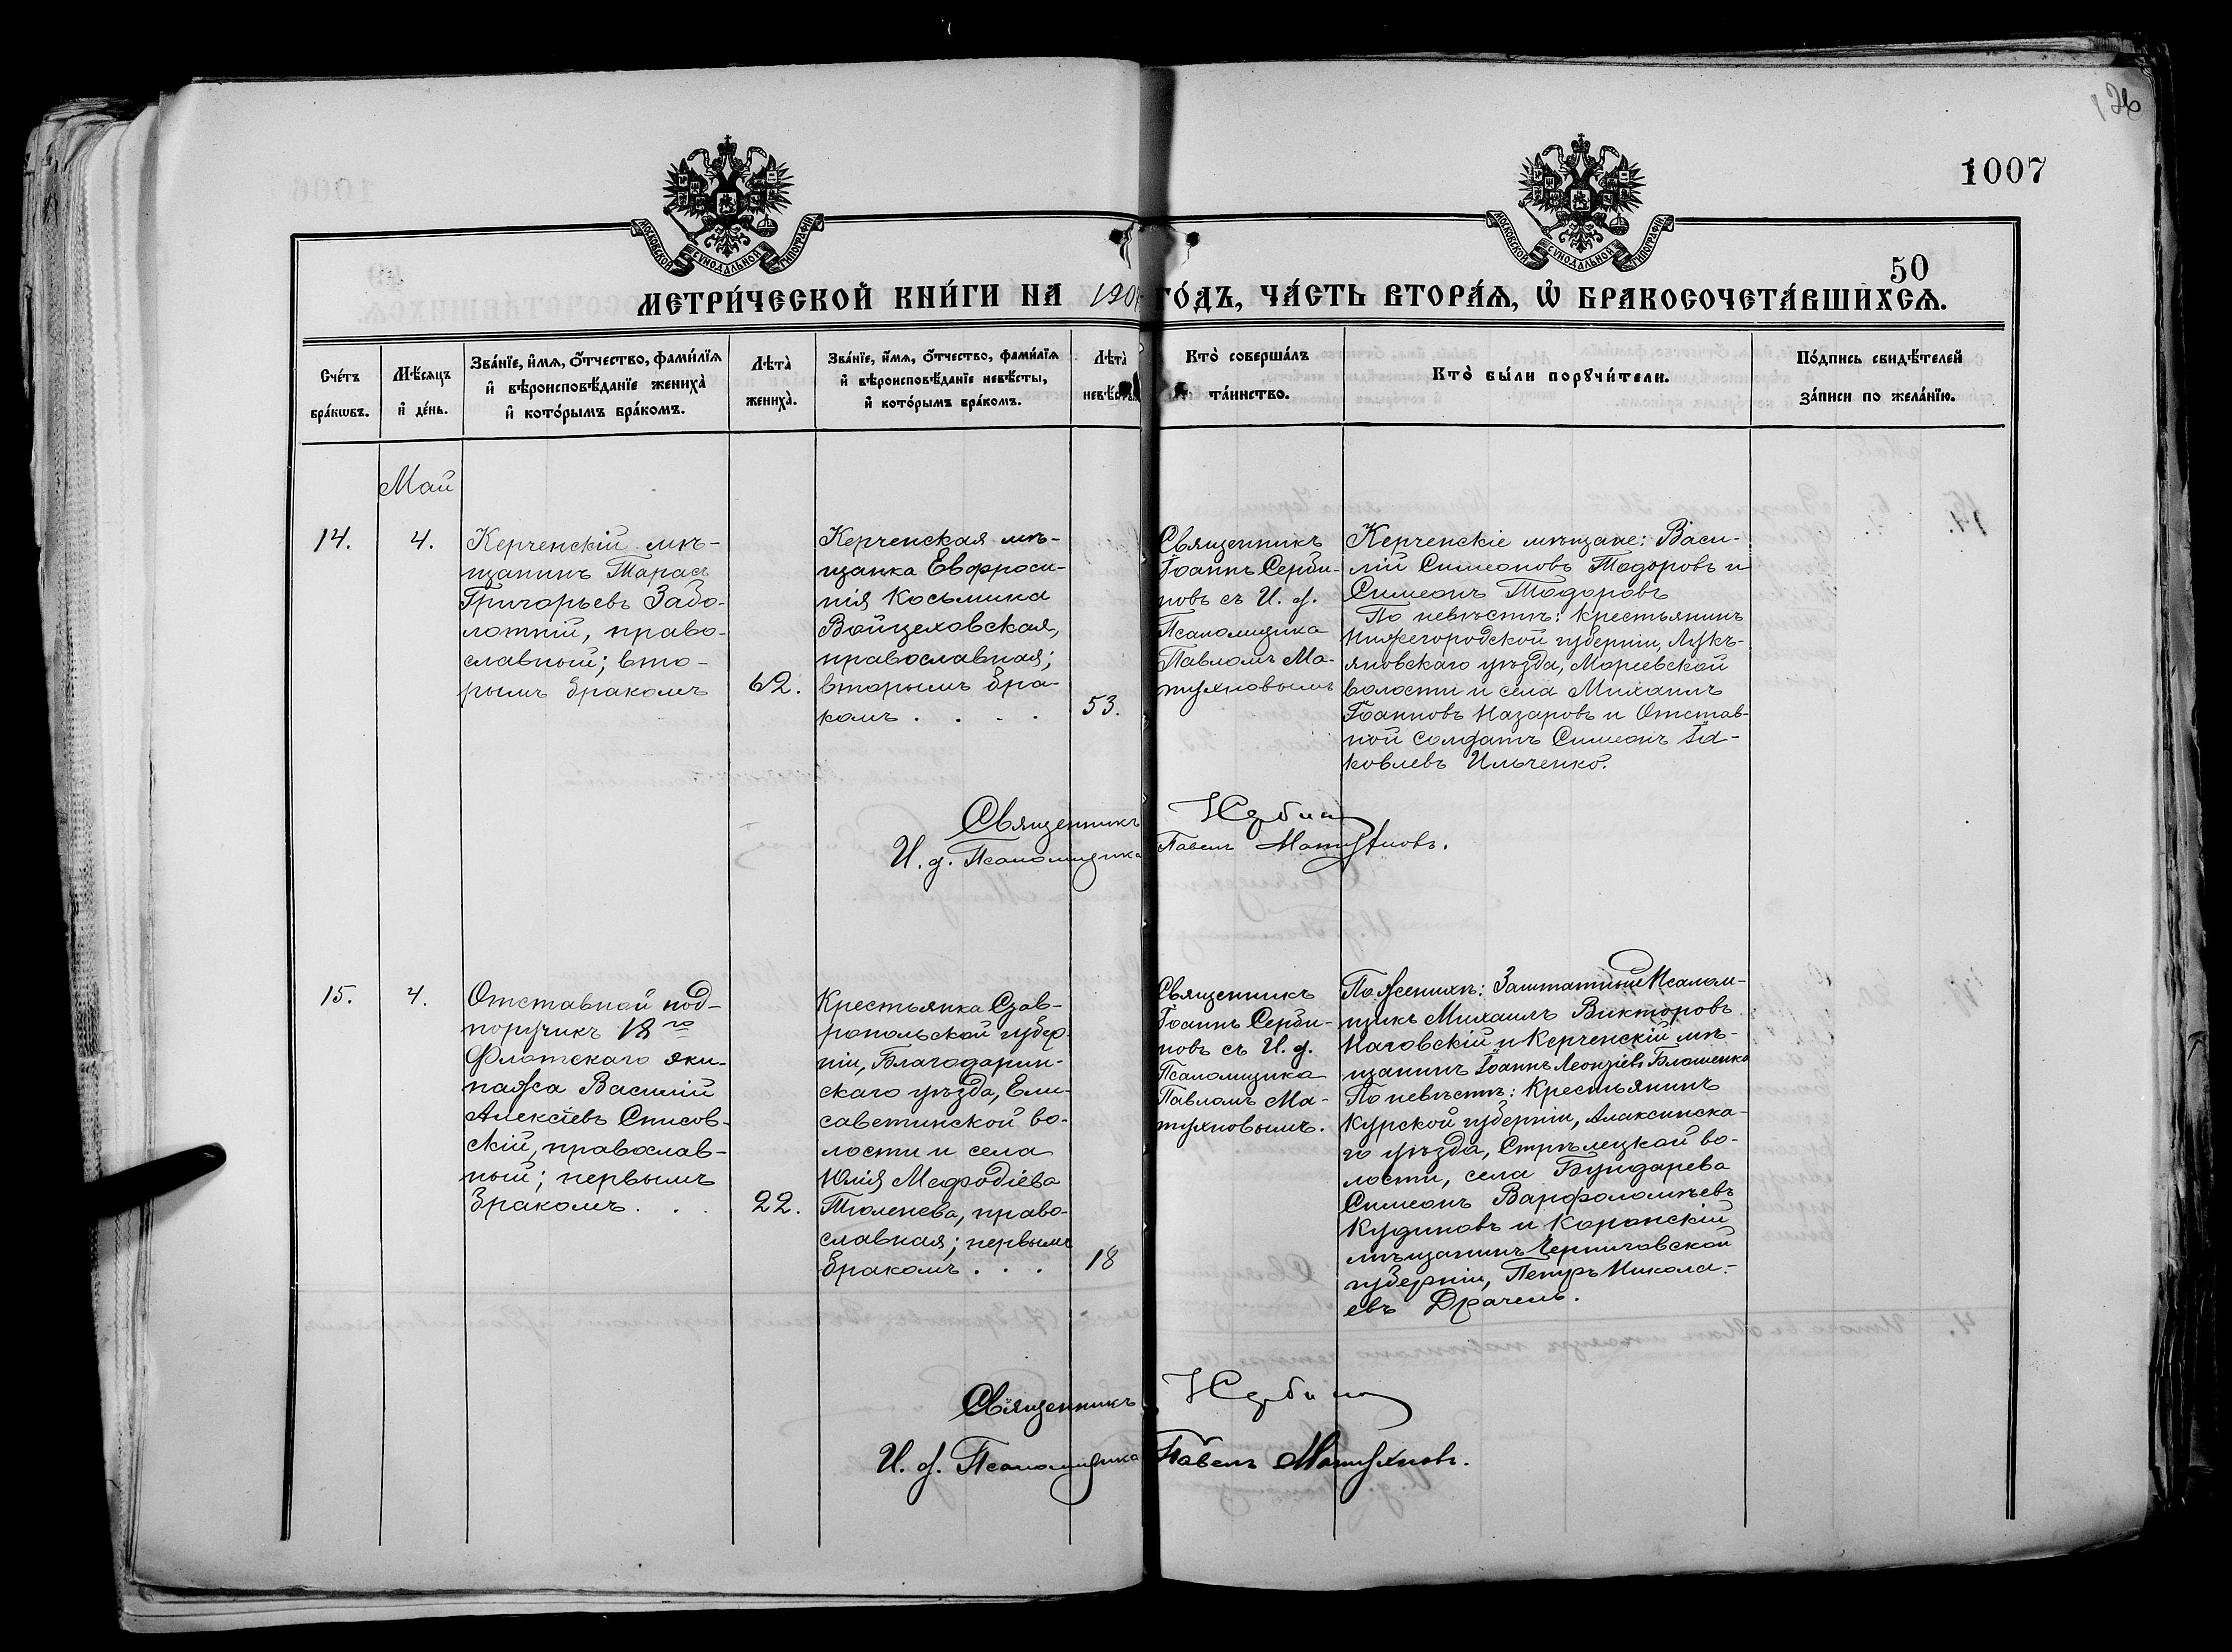 126
1007
50
МОСКОВСКОЙ СѴНОДАЛЬНОЙ ТИПОГРАФІИ
МОСКОВСКОЙ СѴНОДАЛЬНОЙ ТИПОГРАФІИ
МЕТРИ́ЧЕСКОЙ КНИ́ГИ НА 190 ГО́ДЪ, ЧА́СТЬ ВТОРА́Ѧ, Ѽ БРАКОСОЧЕТА́ВШИХСѦ.
Сче́тъ
бра́кѡвъ.
Мѣ́сѧцъ
и҆ де́нь.
Зва́нїе, и҆́мѧ, ѻ҆́тчество, фамѝлїѧ
и҆ вѣроисповѣ́данїе жениха̀
и҆ кото́рымъ бра́комъ.
Лѣта̀
жениха̀.
Зва́нїе, и҆́мѧ, ѻ҆́тчество, фамѝлїѧ
и҆ вѣроисповѣ́данїе невѣ́сты,
и҆ кото́рымъ бра́комъ.
Лѣта̀
невѣ́сты.
Кто̀ соверша́лъ
та́инство.
Кто̀ бы́ли порꙋчи́тели.
По́дпись свидѣ́телей
за́писи по жела́нїю.
Май
14.
4.
Керченскій мѣ-
щанинъ Тарасъ
Григорьевъ Забо-
лотній, право-
славный; вто-
рымъ бракомъ
62.
Керченская мѣ-
щанка Евфроси-
нія Косьмина
Войцеховская,
православная;
вторымъ бра-
комъ . . . .
53.
Священникъ
Іоаннъ Серби-
новъ съ И. д.
Псаломщика
Павломъ Ма-
тухновымъ
Керченскіе мѣщане: Васи-
лій Симеоновъ Тодоровъ и
Симеонъ Тодоровъ
По невѣстѣ: крестьянинъ
Нижегородской губерніи, Лукъ-
яновскаго уѣзда, Мореевской
волости и села Михаилъ
Іоанновъ Назаровъ и Отстав-
ной солдатъ Симеонъ Іа-
ковлевъ Ильченко.
Священникъ
И. д. Псаломщика Павелъ Матухновъ.
15.
4.
Отставной под-
поручикъ 18го
Флотскаго эки-
пажа Василій
Алексіевъ Списов-
скій, православ-
ный; первымъ
бракомъ . . .
22.
Крестьянка Став-
ропольской губер-
ніи, Благодарин-
скаго уѣзда, Ели-
саветинской во-
лости и села
Юлія Мефодіева
Тюленева, право-
славная; первымъ
бракомъ . . .
18
Священникъ
Іоаннъ Серби-
новъ съ И. д.
Псаломщика
Павломъ Ма-
тухновымъ.
По женихѣ: Заштатный Псалом-
щикъ Михаилъ Викторовъ
Наговскій и Керченскій мѣ-
щанинъ Іоаннъ Леонтіевъ Блошенко
По невѣстѣ: Крестьянинъ
Курской губерніи, Алаксинска-
го уѣзда, Стрѣлецкой во-
лости, села Бундарева
Симеонъ Варфоломѣевъ
Кудиновъ и Коропскій
мѣщанинъ Черниговской
губерніи, Петръ Никола-
евъ Драчень.
Священникъ
И. д. Псаломщика Павелъ Матухновъ.